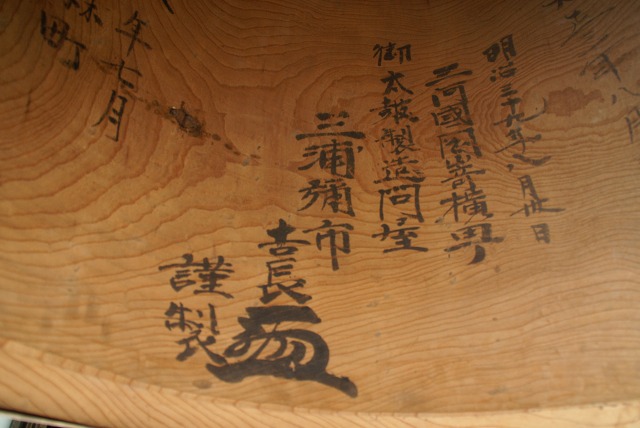 明治三十九年七月廿日
三河國岡嵜横町
御太皷製造問屋
三浦彌市
吉長
謹製
年七月
町